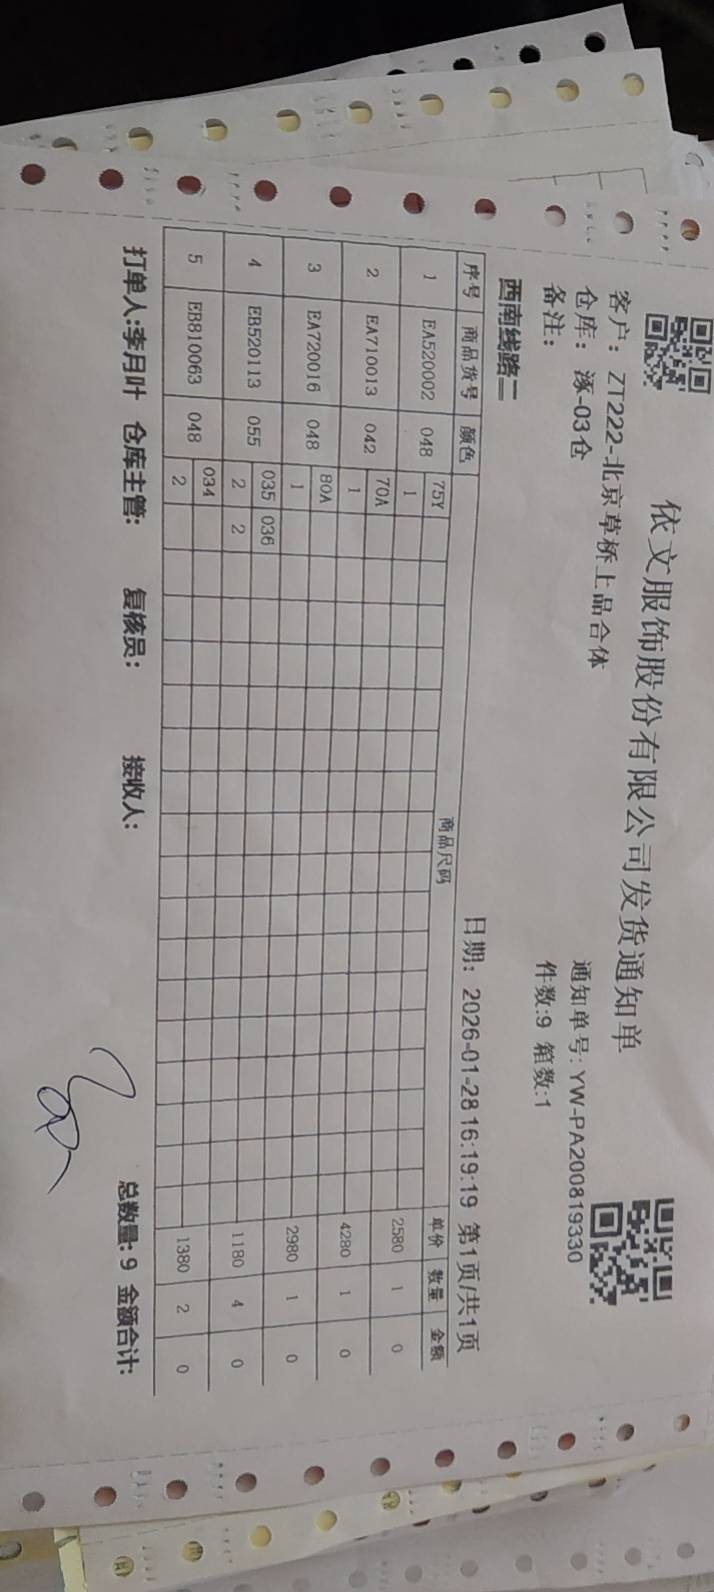 依文服饰股份有限公司发货通知单
客户：ZT222-北京草桥上品合体 通知单号：YW-PA200819330
仓库：涿-03仓 件数:9 箱数:1
备注：
西南线路二 日期：2026-01-28 16:19:19 第1页/共1页
序号 商品货号 颜色 商品尺码 单价 数量 金额
1 EA520002 048 75Y 2580 1 0
1
2 EA710013 042 70A 4280 1 0
1
3 EA720016 048 80A 2980 1 0
1
4 EB520113 055 035 036 1180 4 0
2 2
5 EB810063 048 034 1380 2 0
2
打单人:李月叶 仓库主管: 复核员: 接收人: 总数量: 9 金额合计: